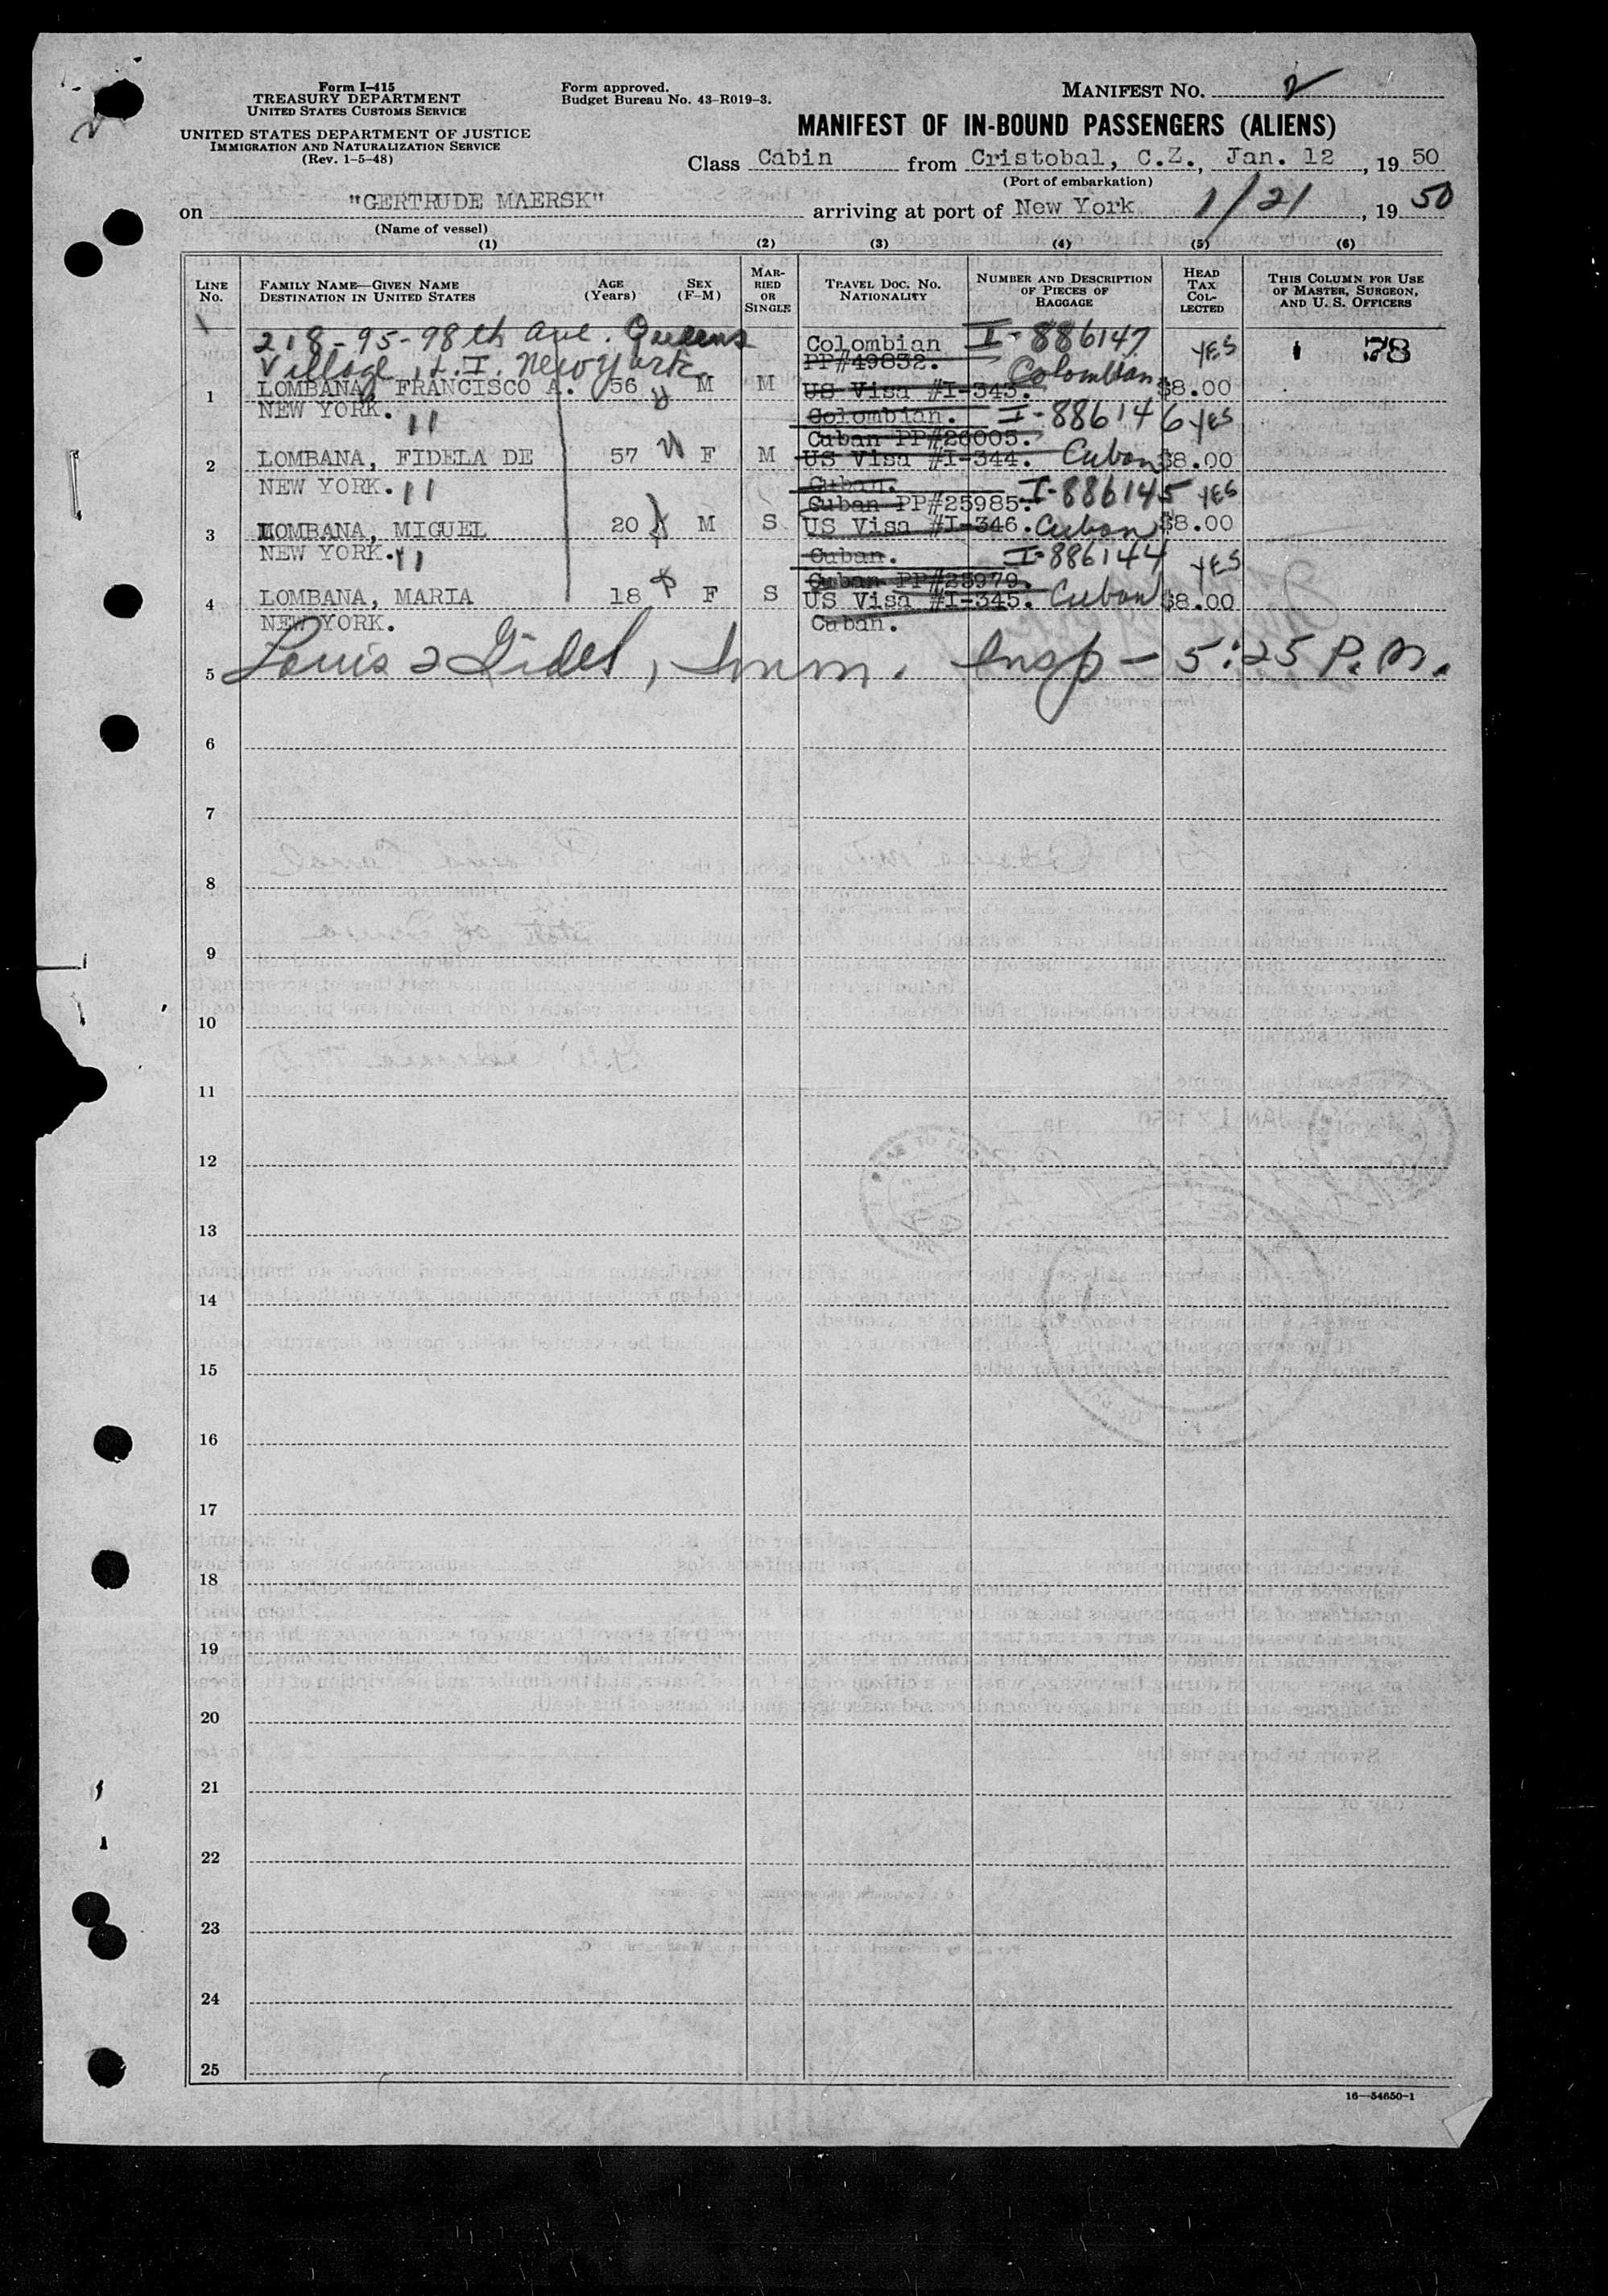 Form I-415
TREASURY DEPARTMENT
UNITED STATES CUSTOMS SERVICE
UNITED STATES DEPARTMENT OF JUSTICE
IMMIGRATION AND NATURALIZATION SERVICE
(Rev. 1-5-48)
Form approved.
Budget Bureau No. 43-R019-3.
MANIFEST NO. 2
MANIFEST OF IN-BOUND PASSENGERS (ALIENS)
Class Cabin from Cristobal, C.Z., Jan. 12, 19 50
(Port of embarkation)
on "GERTRUDE MAERSK" arriving at port of New York 1/21, 19 50
(Name of vessel)
(1) (2) (3) (4) (5) (6)
LINE No.
FAMILY NAME—GIVEN NAME
DESTINATION IN UNITED STATES
AGE (Years)
SEX (F-M)
MARRIED OR SINGLE
TRAVEL DOC. NO. NATIONALITY
NUMBER AND DESCRIPTION OF PIECES OF BAGGAGE
HEAD TAX COLLECTED
THIS COLUMN FOR USE OF MASTER, SURGEON, AND U. S. OFFICERS
218-95-98th Ave. Queens Colombian I-886147 YES 78
Village, L.I. New York PP#49832. Colombian
1 LOMBANA, FRANCISCO A. 56 M M US Visa #I-343. $8.00
NEW YORK. 11 Colombian. I-886146 YES
Cuban PP#26005.
2 LOMBANA, FIDELA DE 57 F M US Visa #I-344. Cuban $8.00
NEW YORK. 11 Cuban. I-886145 YES
Cuban PP#25985.
3 LOMBANA, MIGUEL 20 M S US Visa #I-346. Cuban $8.00
NEW YORK. 11 Cuban. I-886144 YES
Cuban PP#25979.
4 LOMBANA, MARIA 18 F S US Visa #I-345. Cuban $8.00
NEW YORK. Cuban.
5 Louis Imm. Insp - 5:25 P.M.
6
7
8
9
10
11
12
13
14
15
16
17
18
19
20
21
22
23
24
25
16—54650-1